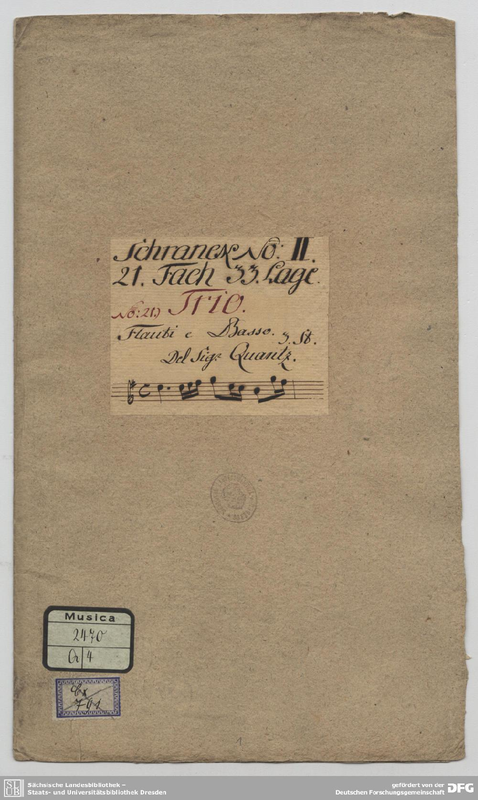 Schranck No: II.
21. Fach 33. Lage.
No: 21) Trio.
Flauti e Basso. 3. St.
Del Sigr Quantz.
Musica
2470
Q/4
Cx
791
1
Sächsische Landesbibliothek –
Staats- und Universitätsbibliothek Dresden
gefördert von der
Deutschen Forschungsgemeinschaft DFG
SLUB